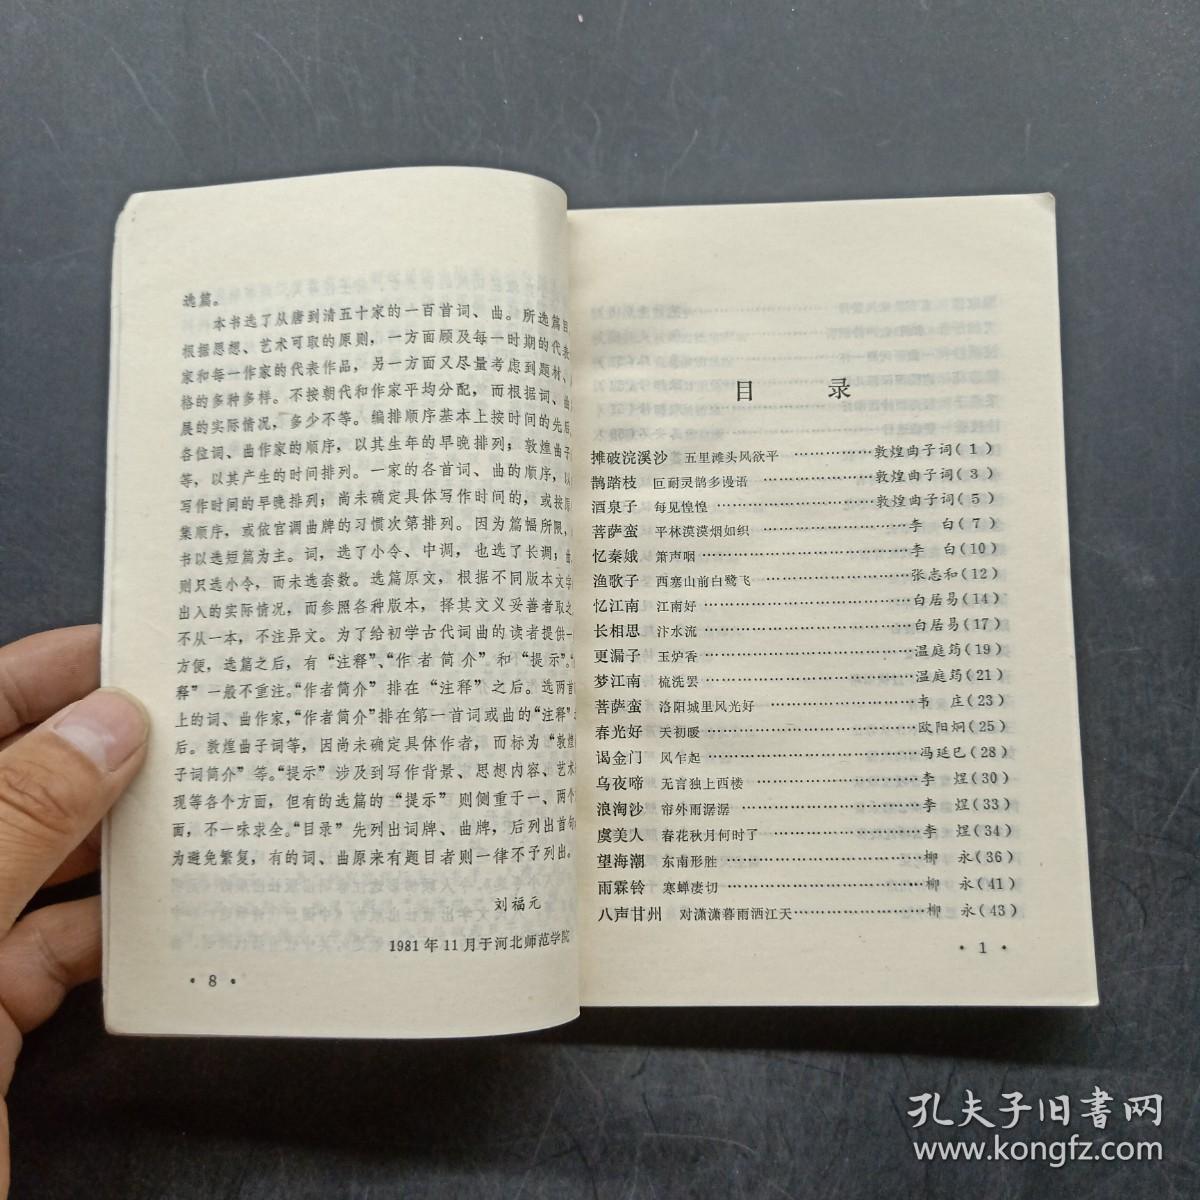 选篇。
本书选了从唐到清五十家的一百首词、曲。所选篇目
根据思想、艺术可取的原则，一方面顾及每一时期的代表
家和每一作家的代表作品，另一方面又尽量考虑到题材、
格的多种多样。不按朝代和作家平均分配，而根据词、曲
展的实际情况，多少不等。编排顺序基本上按时间的先后，
各位词、曲作家的顺序，以其生年的早晚排列；敦煌曲子
等，以其产生的时间排列。一家的各首词、曲的顺序，以
写作时间的早晚排列；尚未确定具体写作时间的，或按原
集顺序，或依宫调曲牌的习惯次第排列。因为篇幅所限，
书以选短篇为主。词，选了小令、中调，也选了长调；曲
则只选小令，而未选套数。选篇原文，根据不同版本文字
出入的实际情况，而参照各种版本，择其文义妥善者取之
不从一本，不注异文。为了给初学古代词曲的读者提供一
方便，选篇之后，有“注释”、“作者简介”和“提示”。“
释”一般不重注。“作者简介”排在“注释”之后。选两首
上的词、曲作家，“作者简介”排在第一首词或曲的“注释”
后。敦煌曲子词等，因尚未确定具体作者，而标为“敦煌
子词简介”等。“提示”涉及到写作背景、思想内容、艺术
现等各个方面，但有的选篇的“提示”则侧重于一、两个
面，不一味求全。“目录”先列出词牌、曲牌，后列出首句
为避免繁复，有的词、曲原来有题目者则一律不予列出。
刘福元
1981年11月于河北师范学院
·8·
目 录
摊破浣溪沙 五里滩头风欲平……………敦煌曲子词(1)
鹊踏枝 叵耐灵鹊多谩语……………敦煌曲子词(3)
酒泉子 每见惶惶……………敦煌曲子词(5)
菩萨蛮 平林漠漠烟如织……………李 白(7)
忆秦娥 箫声咽……………李 白(10)
渔歌子 西塞山前白鹭飞……………张志和(12)
忆江南 江南好……………白居易(14)
长相思 汴水流……………白居易(17)
更漏子 玉炉香……………温庭筠(19)
梦江南 梳洗罢……………温庭筠(21)
菩萨蛮 洛阳城里风光好……………韦 庄(23)
春光好 天初暖……………欧阳炯(25)
谒金门 风乍起……………冯延巳(28)
乌夜啼 无言独上西楼……………李 煜(30)
浪淘沙 帘外雨潺潺……………李 煜(33)
虞美人 春花秋月何时了……………李 煜(34)
望海潮 东南形胜……………柳 永(36)
雨霖铃 寒蝉凄切……………柳 永(41)
八声甘州 对潇潇暮雨洒江天……………柳 永(43)
·1·
孔夫子旧书网
www.kongfz.com